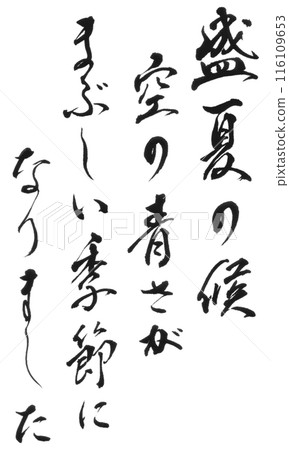 盛夏の候
空の青さが
まぶしい季節に
なりました
116109653